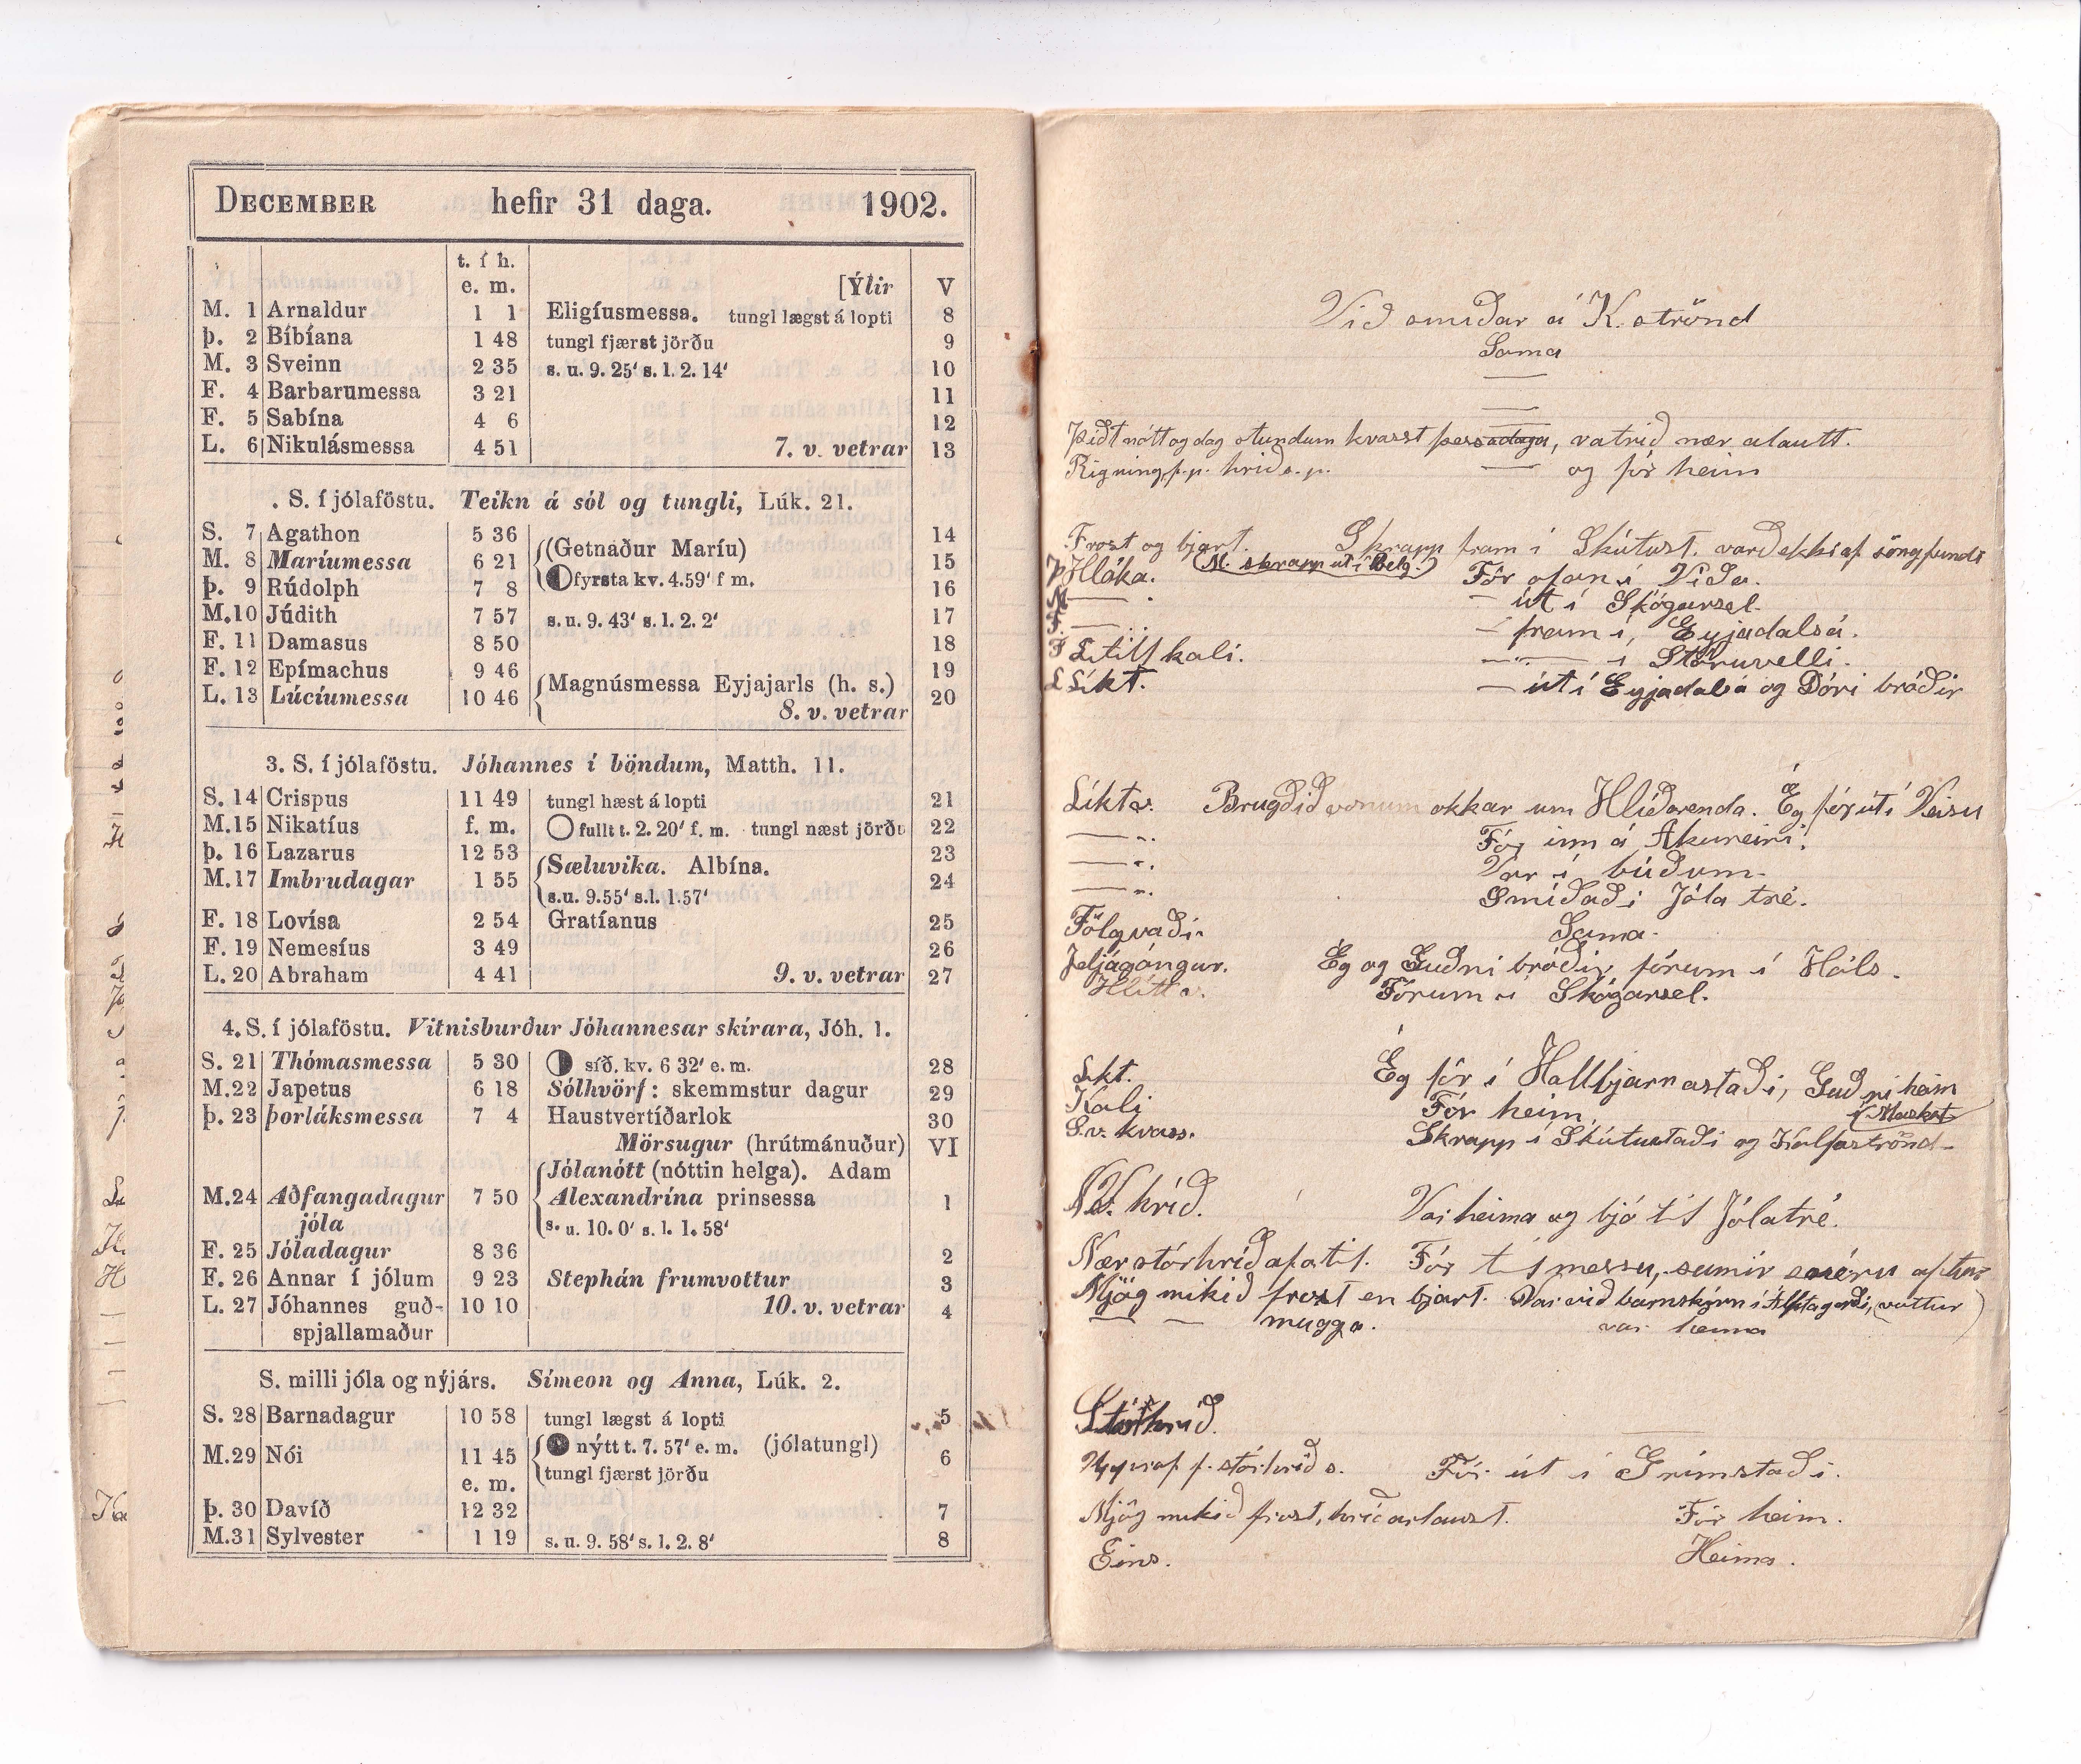 DECEMBER hefir 31 daga. 1902.
t. í h.
e. m. [Ýlir V
M. 1 Arnaldur 1 1 Eligíusmessa. tungl lægst á lopti 8
Þ. 2 Bíbíana 1 48 tungl fjærst jörðu 9
M. 3 Sveinn 2 35 s. u. 9. 25' s. l. 2. 14' 10
F. 4 Barbarumessa 3 21 11
F. 5 Sabína 4 6 12
L. 6 Nikulásmessa 4 51 7. v. vetrar 13
. S. í jólaföstu. Teikn á sól og tungli, Lúk. 21.
S. 7 Agathon 5 36 14
M. 8 Maríumessa 6 21 (Getnaður Maríu) 15
Þ. 9 Rúdolph 7 8 fyrsta kv. 4.59' f m. 16
M. 10 Júdith 7 57 s. u. 9. 43' s. l. 2. 2' 17
F. 11 Damasus 8 50 18
F. 12 Epímachus 9 46 19
L. 13 Lúcíumessa 10 46 Magnúsmessa Eyjajarls (h. s.) 20
8. v. vetrar
3. S. í jólaföstu. Jóhannes í böndum, Matth. 11.
S. 14 Crispus 11 49 tungl hæst á lopti 21
M. 15 Nikatíus f. m. fullt t. 2. 20' f. m. tungl næst jörðu 22
Þ. 16 Lazarus 12 53 23
Sæluvika. Albína.
M. 17 Imbrudagar 1 55 24
s. u. 9.55' s. l. 1.57'
F. 18 Lovísa 2 54 Gratíanus 25
F. 19 Nemesíus 3 49 26
L. 20 Abraham 4 41 9. v. vetrar 27
4. S. í jólaföstu. Vitnisburður Jóhannesar skírara, Jóh. 1.
S. 21 Thómasmessa 5 30 síð. kv. 6 32' e. m. 28
M. 22 Japetus 6 18 Sólhvörf: skemmstur dagur 29
Þ. 23 Þorláksmessa 7 4 Haustvertíðarlok 30
Mörsugur (hrútmánuður) VI
Jólanótt (nóttin helga). Adam
M. 24 Aðfangadagur 7 50 Alexandrína prinsessa 1
jóla s. u. 10. 0' s. l. 1. 58'
F. 25 Jóladagur 8 36 2
F. 26 Annar í jólum 9 23 Stephán frumvottur 3
L. 27 Jóhannes guð- 10 10 10. v. vetrar 4
spjallamaður
S. milli jóla og nýjárs. Símeon og Anna, Lúk. 2.
S. 28 Barnadagur 10 58 tungl lægst á lopti 5
M. 29 Nói 11 45 nýtt t. 7. 57' e. m. (jólatungl) 6
e. m. tungl fjærst jörðu
Þ. 30 Davíð 12 32 7
M. 31 Sylvester 1 19 s. u. 9. 58' s. l. 2. 8' 8
Við smíðar á K. strönd
Sama
Þíðt nótt og dag stundum kvasst þessa daga, vatnið nær alautt.
Rigning f.p. hríð s.p. — og fór heim
Frost og bjart. Skrapp fram í Skútust. varð ekki af söngfundi
Þ Hláka. M. skrapp út í Belg. Fór ofan í Víða.
M — . — út í Skógarsel.
F — .. — fram í, Eyjadalsá.
F Lítill kali. — í Stóruvelli.
L Líkt. — út í Eyjadalsá og Dóri bróðir
Líkt v. Brugðið vonum okkar um Hlíðarenda. Ég fór út í Veisu
— .. Fór inn á Akureiri.
— .. Var í búðum.
— .. Smíðaði Jóla tré.
Fölgvaði. Sama.
Jeljagángur. Ég og Guðni bróðir fórum í Háls.
Hlítt v. Fórum í Skógarsel.
Líkt. Ég fór í Hallbjarnastaði, Guðni heim
Kali Fór heim.
S.v. kvass. Skrapp í Skútustaði og Kálfaströnd
N.V. hríð. Var heima og bjó til Jólatré.
Nær stórhríð af át. Fór til messu, sumir snéru aptur
Mjög mikið frost en bjart. Var við barnskírn í Álptagerði, (vottur)
— — mugga. var heima
Stórhríð.
Uppraf f. stórhríð s. Fór út í Grímstaði.
Mjög mikið frost, hríðarlaust. Fór heim.
Eins. Heima.